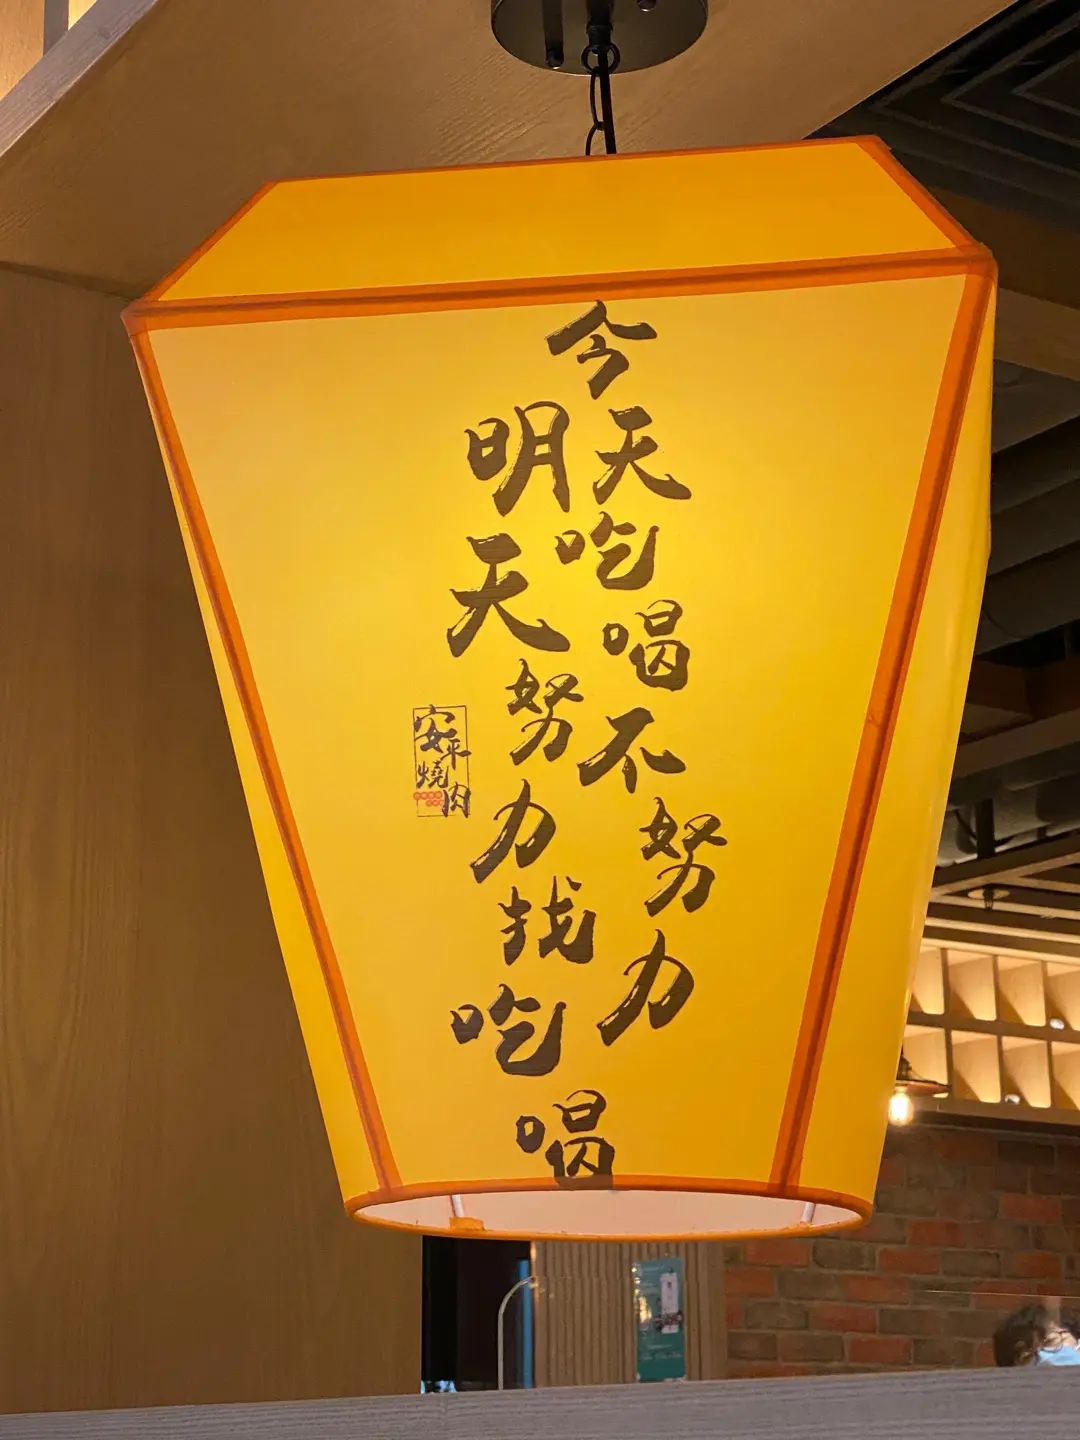 今天吃喝不努力
明天努力找吃喝
安平燒肉